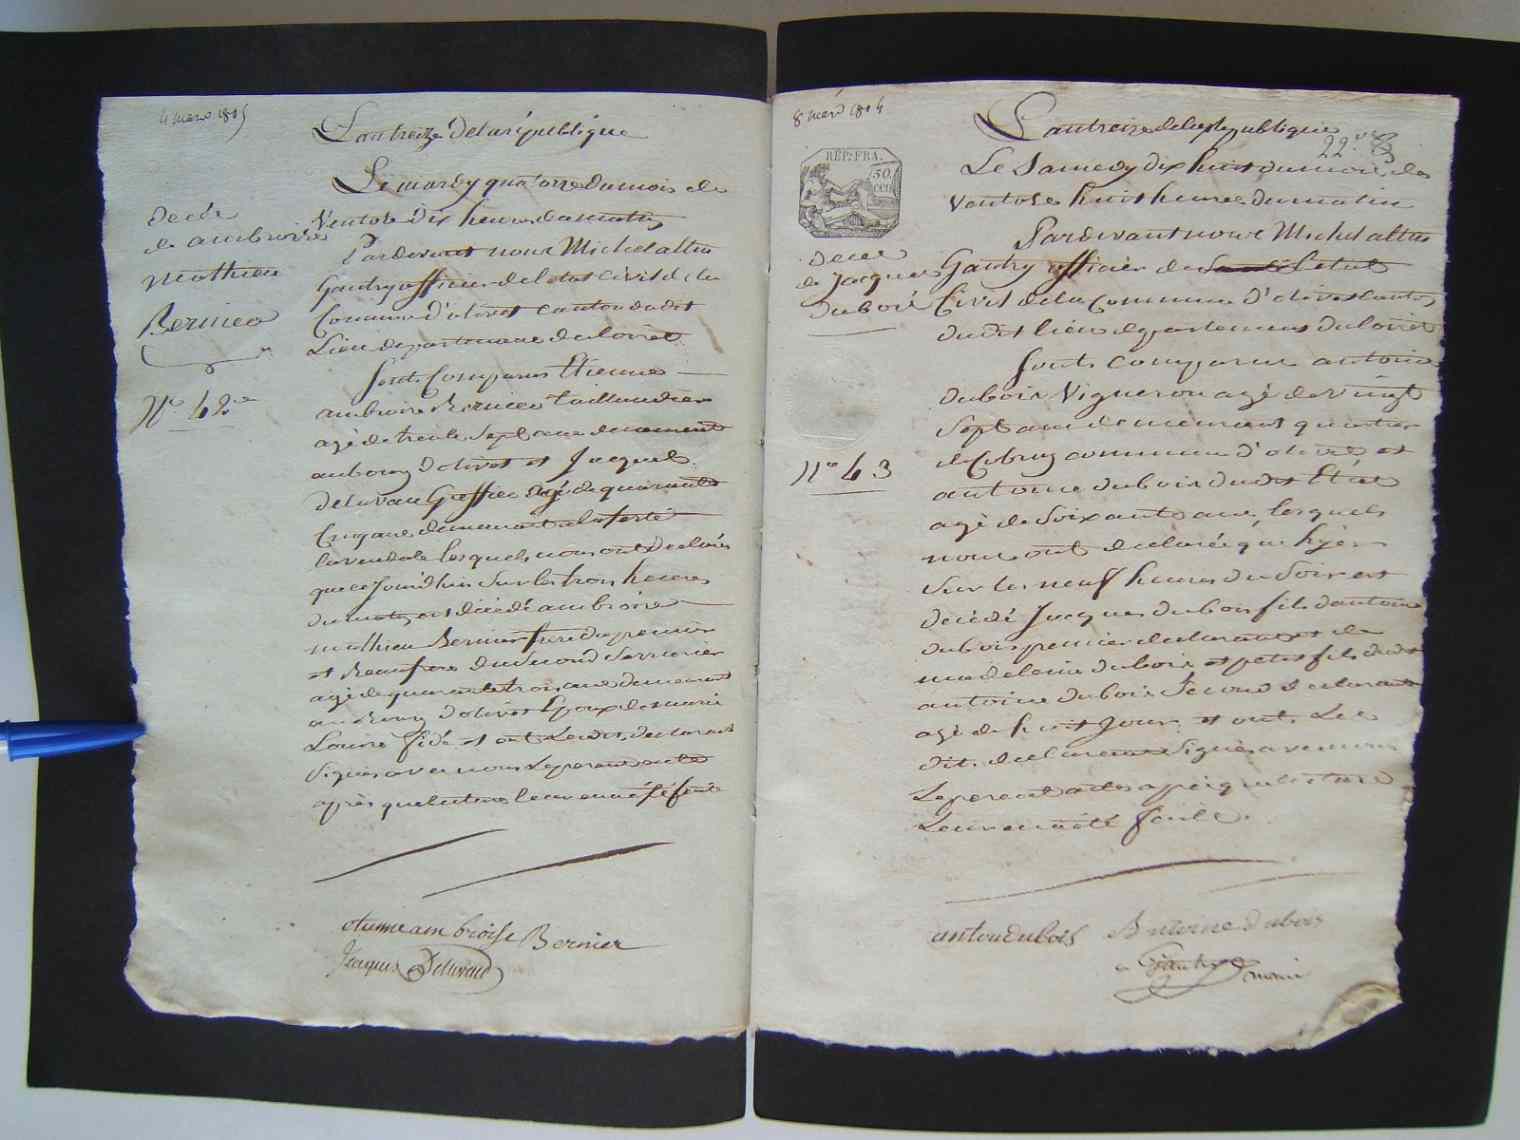 4 mars 1805
L'an treize de la république
Le mardy quatorze du mois de
Ventose dix heures du matin
Pardevant nous Michel
Gaudry officier de l'etat Civil de la
Commune d'olivet canton dudit
Lieu departement du loiret
Sont Comparus Etienne
ambroise Bernier taillandier
agé de trente sept ans demeurant
au bourg d'olivet et Jacques
deluvau Greffier agé de quarante
Cinq ans demeurant a la ferté
lavendale lesquels nous ont declarés
que ce Jourdhui sur les trois heures
du matin est décédé ambroise
mathieu Bernier frere du premier
et Beaufrere du second Serrurier
agé de quarante trois ans demeurant
au Bourg d'olivet Epoux de marie
Louise et ont Lesdits declarans
Signés avec nous Le present acte
après que lecture leur en a été faite
Decès
de ambroise
Mathieu
Bernier
No 42
etienne ambroise Bernier
Jacques Deluvau
8 mars 1805
L'an treize de la Republique
22
REP. FRA.
50
cen
Le Samedy dix huit du mois de
Ventose huit heures du matin
Pardevant nous Michel
Gaudry officier de L'etat
Civil de la Commune d'olivet Canton
dudit lieu departement du loiret
Sont Comparus antoine
dubois Vigneron agé de Vingt
Sept ans demeurant quartier
de commune d'olivet et
antoine dubois dudit Etat
agé de Soixante ans, lesquels
nous ont declaré que hyer
Sur les neuf heures du Soir est
decédé Jacques dubois fils d'antoine
dubois premier declarant et de
madeleine dubois et petit fils dudit
antoine dubois Second declarant
agé de huit Jours et ont Les
dits declarans Signés avec nous
Le present acte après que lecture
Leur en a été faite.
Decès
de Jacques
Dubois
No 43
antoine dubois Antoine dubois
Gaudry
maire